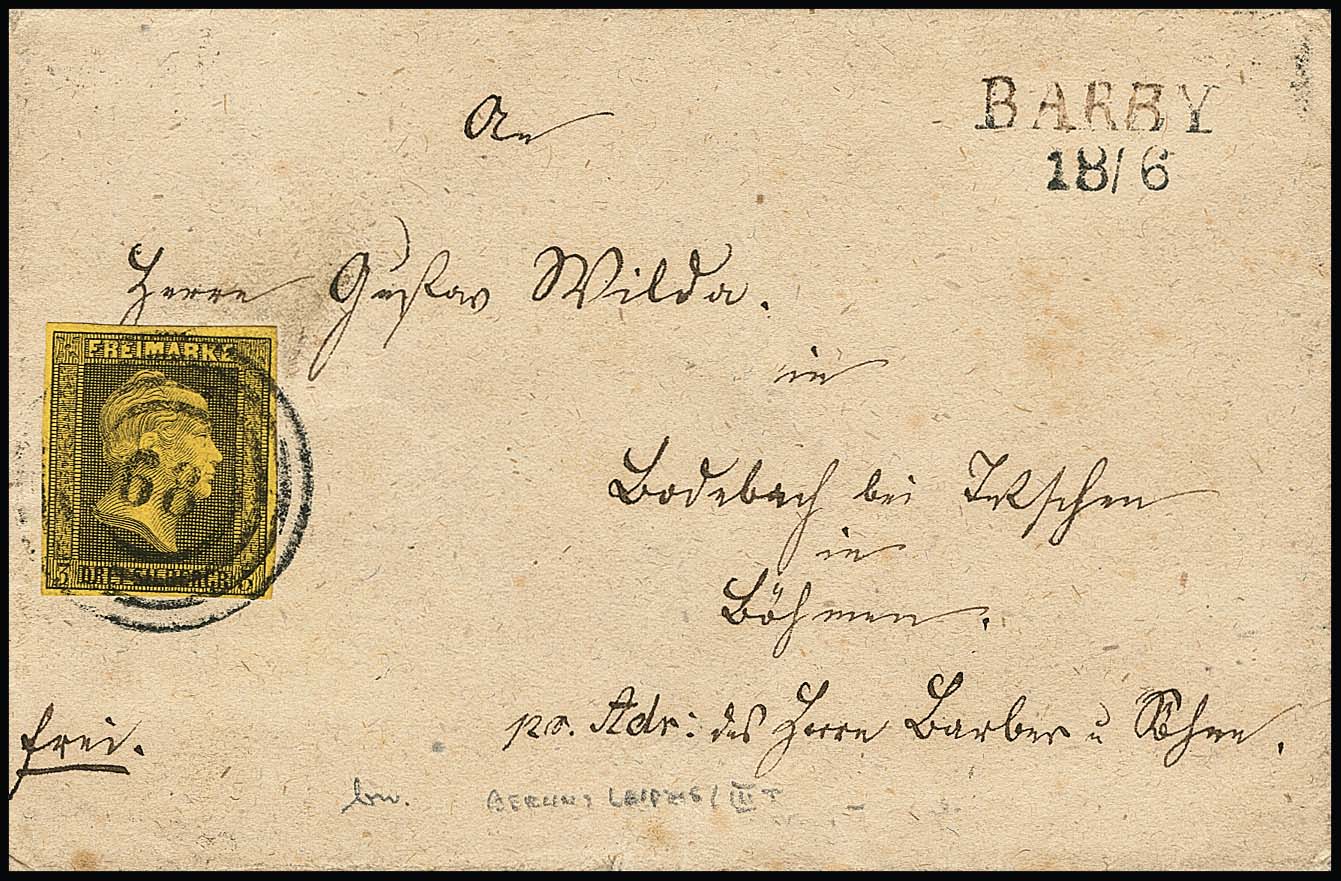 BARBY
18/6
An
Herrn Gustav Wilda.
in
FREIMARKE
68
3 DREI SILBERGR. 3
Bodebach bei Tetschen
in
Böhmen.
pr. Adr: des Herrn Barber u Söhne.
frei.
BERLIN: LEIPZIG / III T